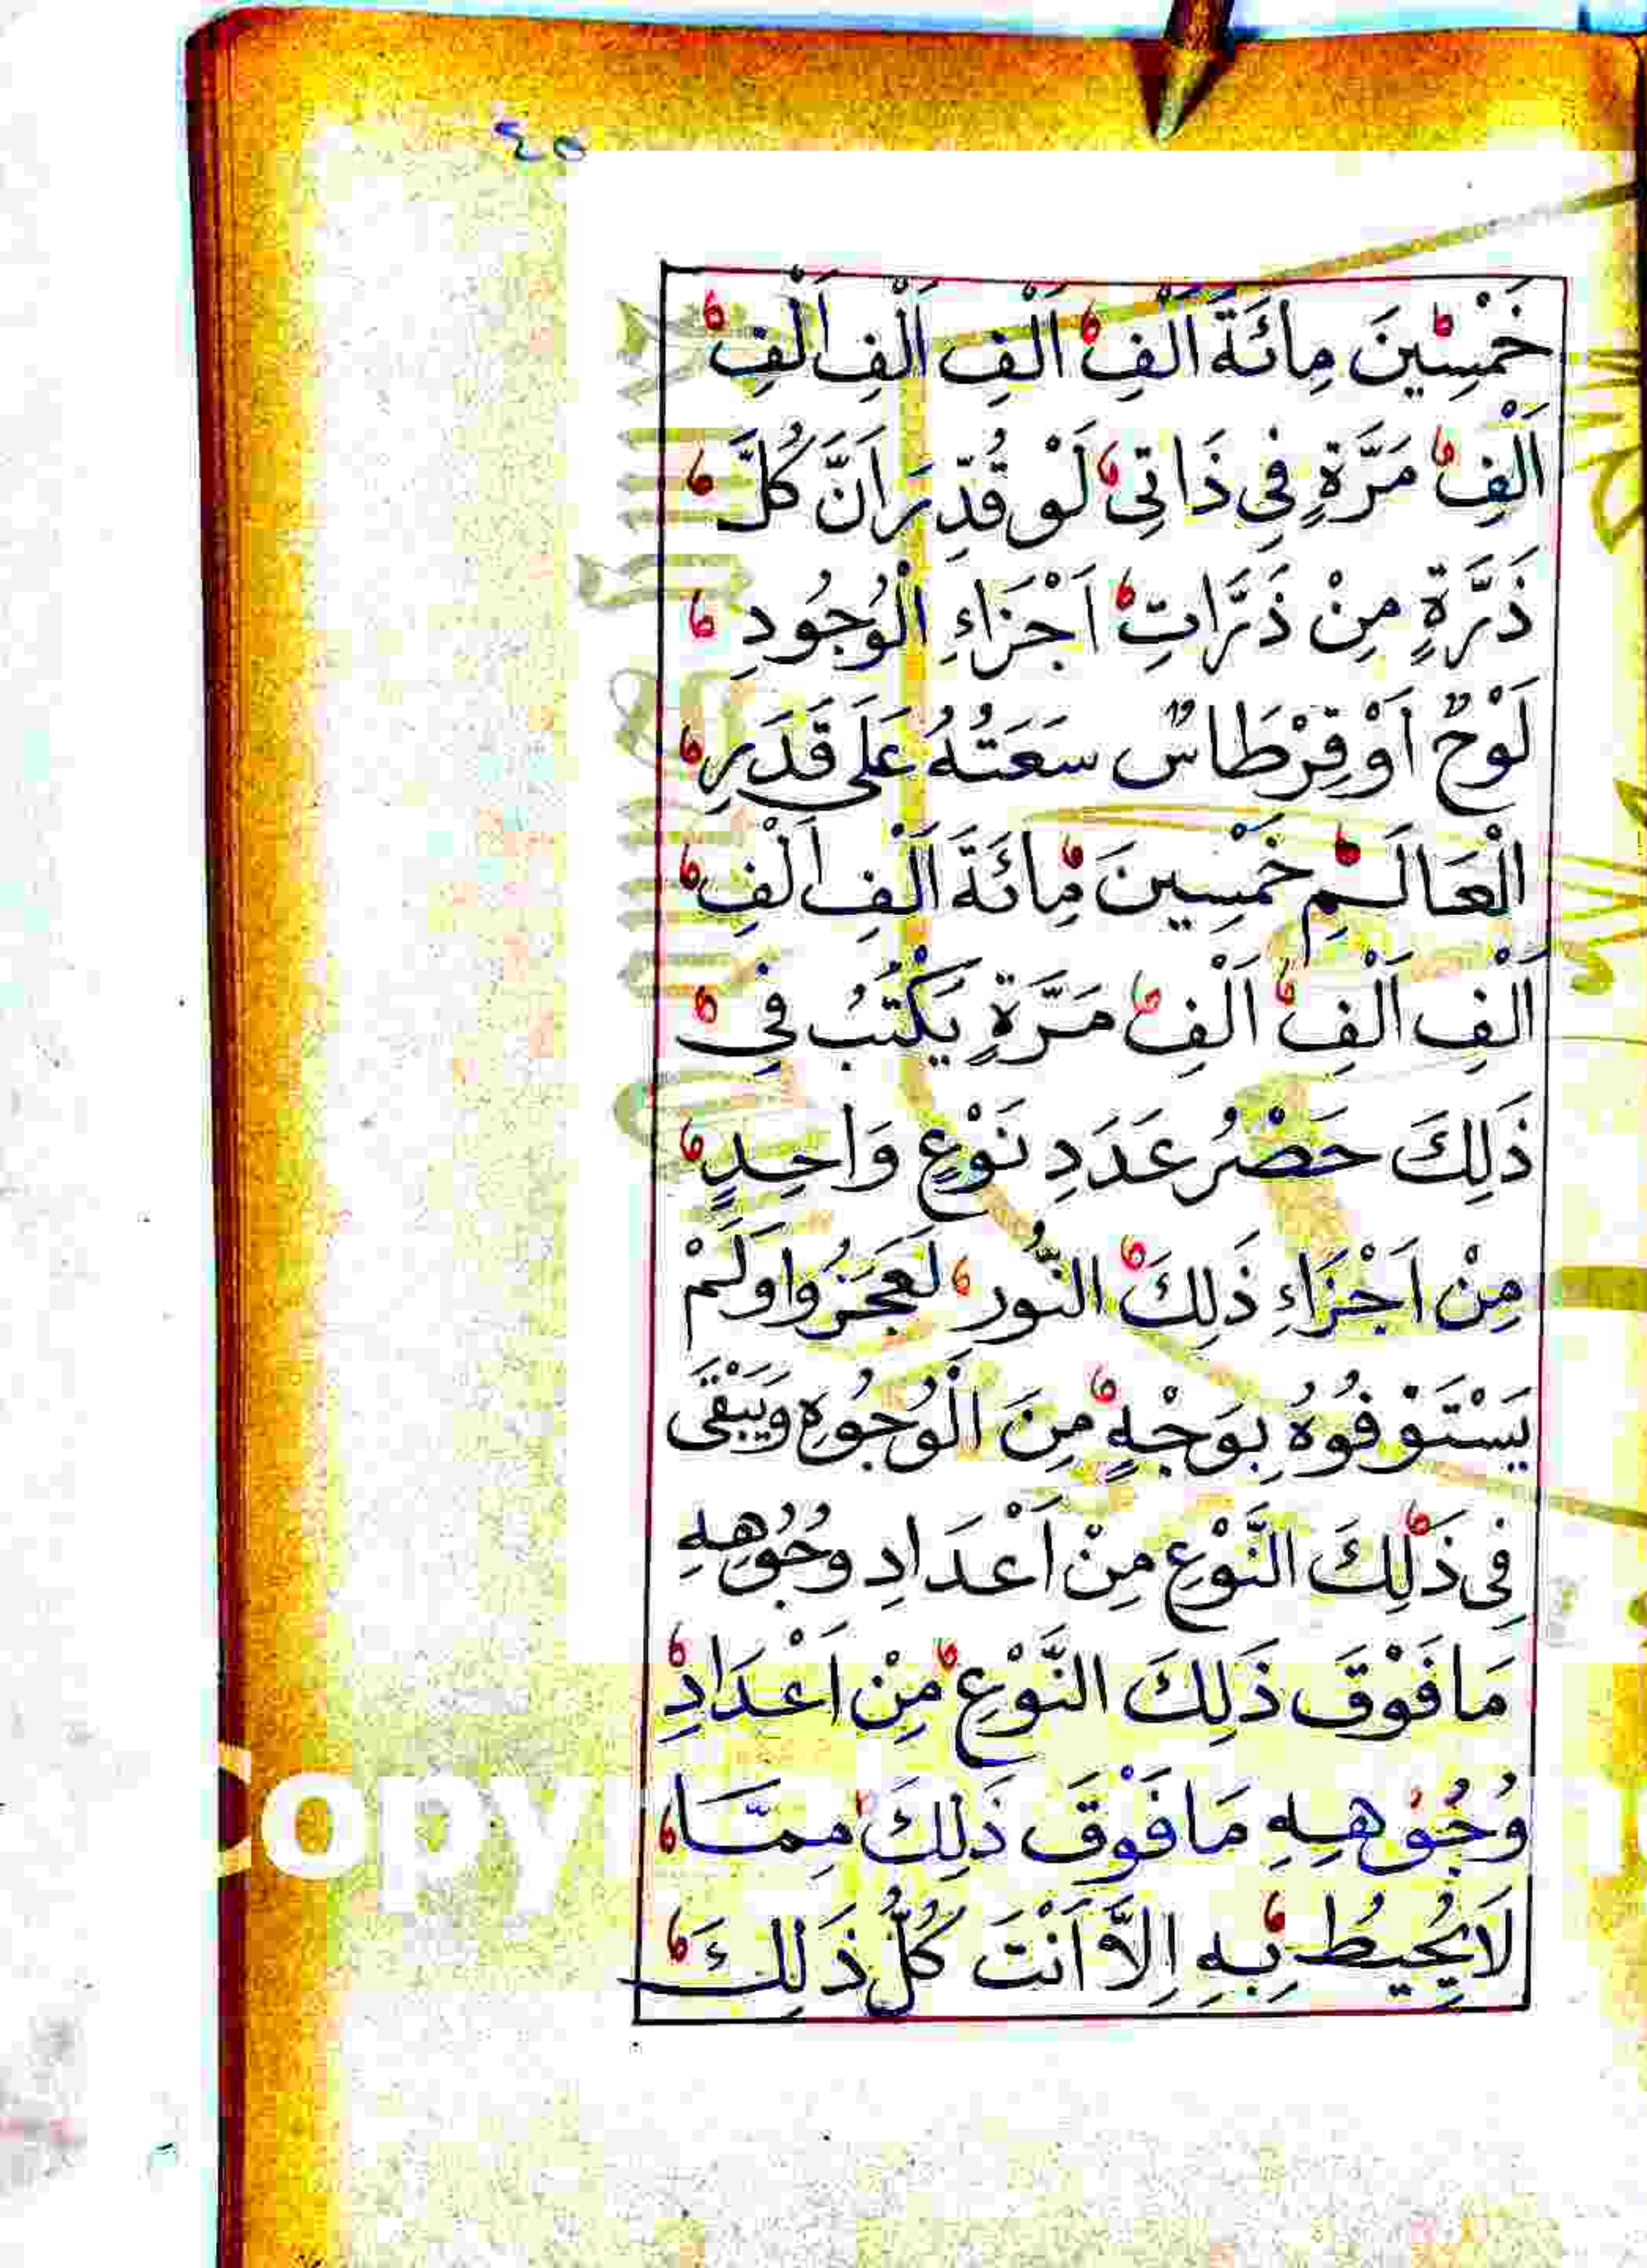 ٤٥
خَمْسِينَ مِائَةَ اَلْفِ اَلْفِ اَلْفِ اَلْفِ
اَلْفِ مَرَّةٍ فِي ذَاتِى لَوْ قُدِّرَ اَنَّ كُلَّ
ذَرَّةٍ مِنْ ذَرَّاتِ اَجْزَاءِ الْوُجُودِ
لَوْحٌ اَوْ قِرْطَاسٌ سَعَتُهُ عَلَى قَدَرِ
الْعَالَمِ خَمْسِينَ مِائَةَ اَلْفِ اَلْفِ
اَلْفِ اَلْفِ اَلْفِ مَرَّةٍ يَكْتُبُ فِي
ذَلِكَ حَصْرُ عَدَدِ نَوْعٍ وَاحِدٍ
مِنْ اَجْزَاءِ ذَلِكَ النُّورِ لَعَجَزُوا وَلَمْ
يَسْتَوْفُوهُ بِوَجْهٍ مِنَ الْوُجُوهِ وَيَبْقَى
فِى ذَلِكَ النَّوْعِ مِنْ اَعْدَادِ وُجُوهِهِ
مَا فَوْقَ ذَلِكَ النَّوْعِ مِنْ اَعْدَادِ
وُجُوهِهِ مَا فَوْقَ ذَلِكَ مِمَّا
لَا يُحِيطُ بِهِ اِلَّا اَنْتَ كُلُّ ذَلِكَ
Copy